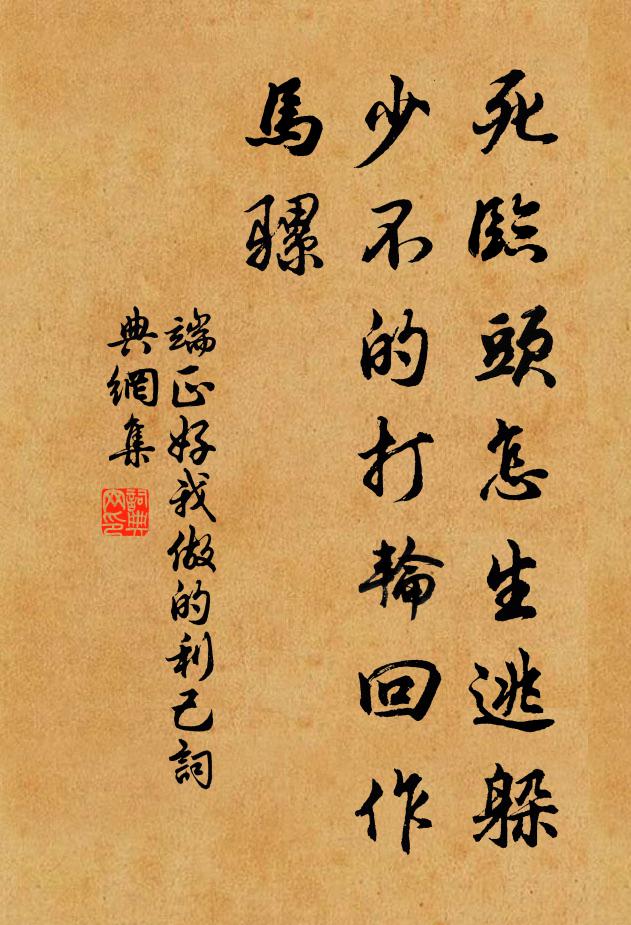 死臨頭怎生逃躲
少不的打輪回作
馬騾
端正好我做的利己詞
典網集
詞典
网印